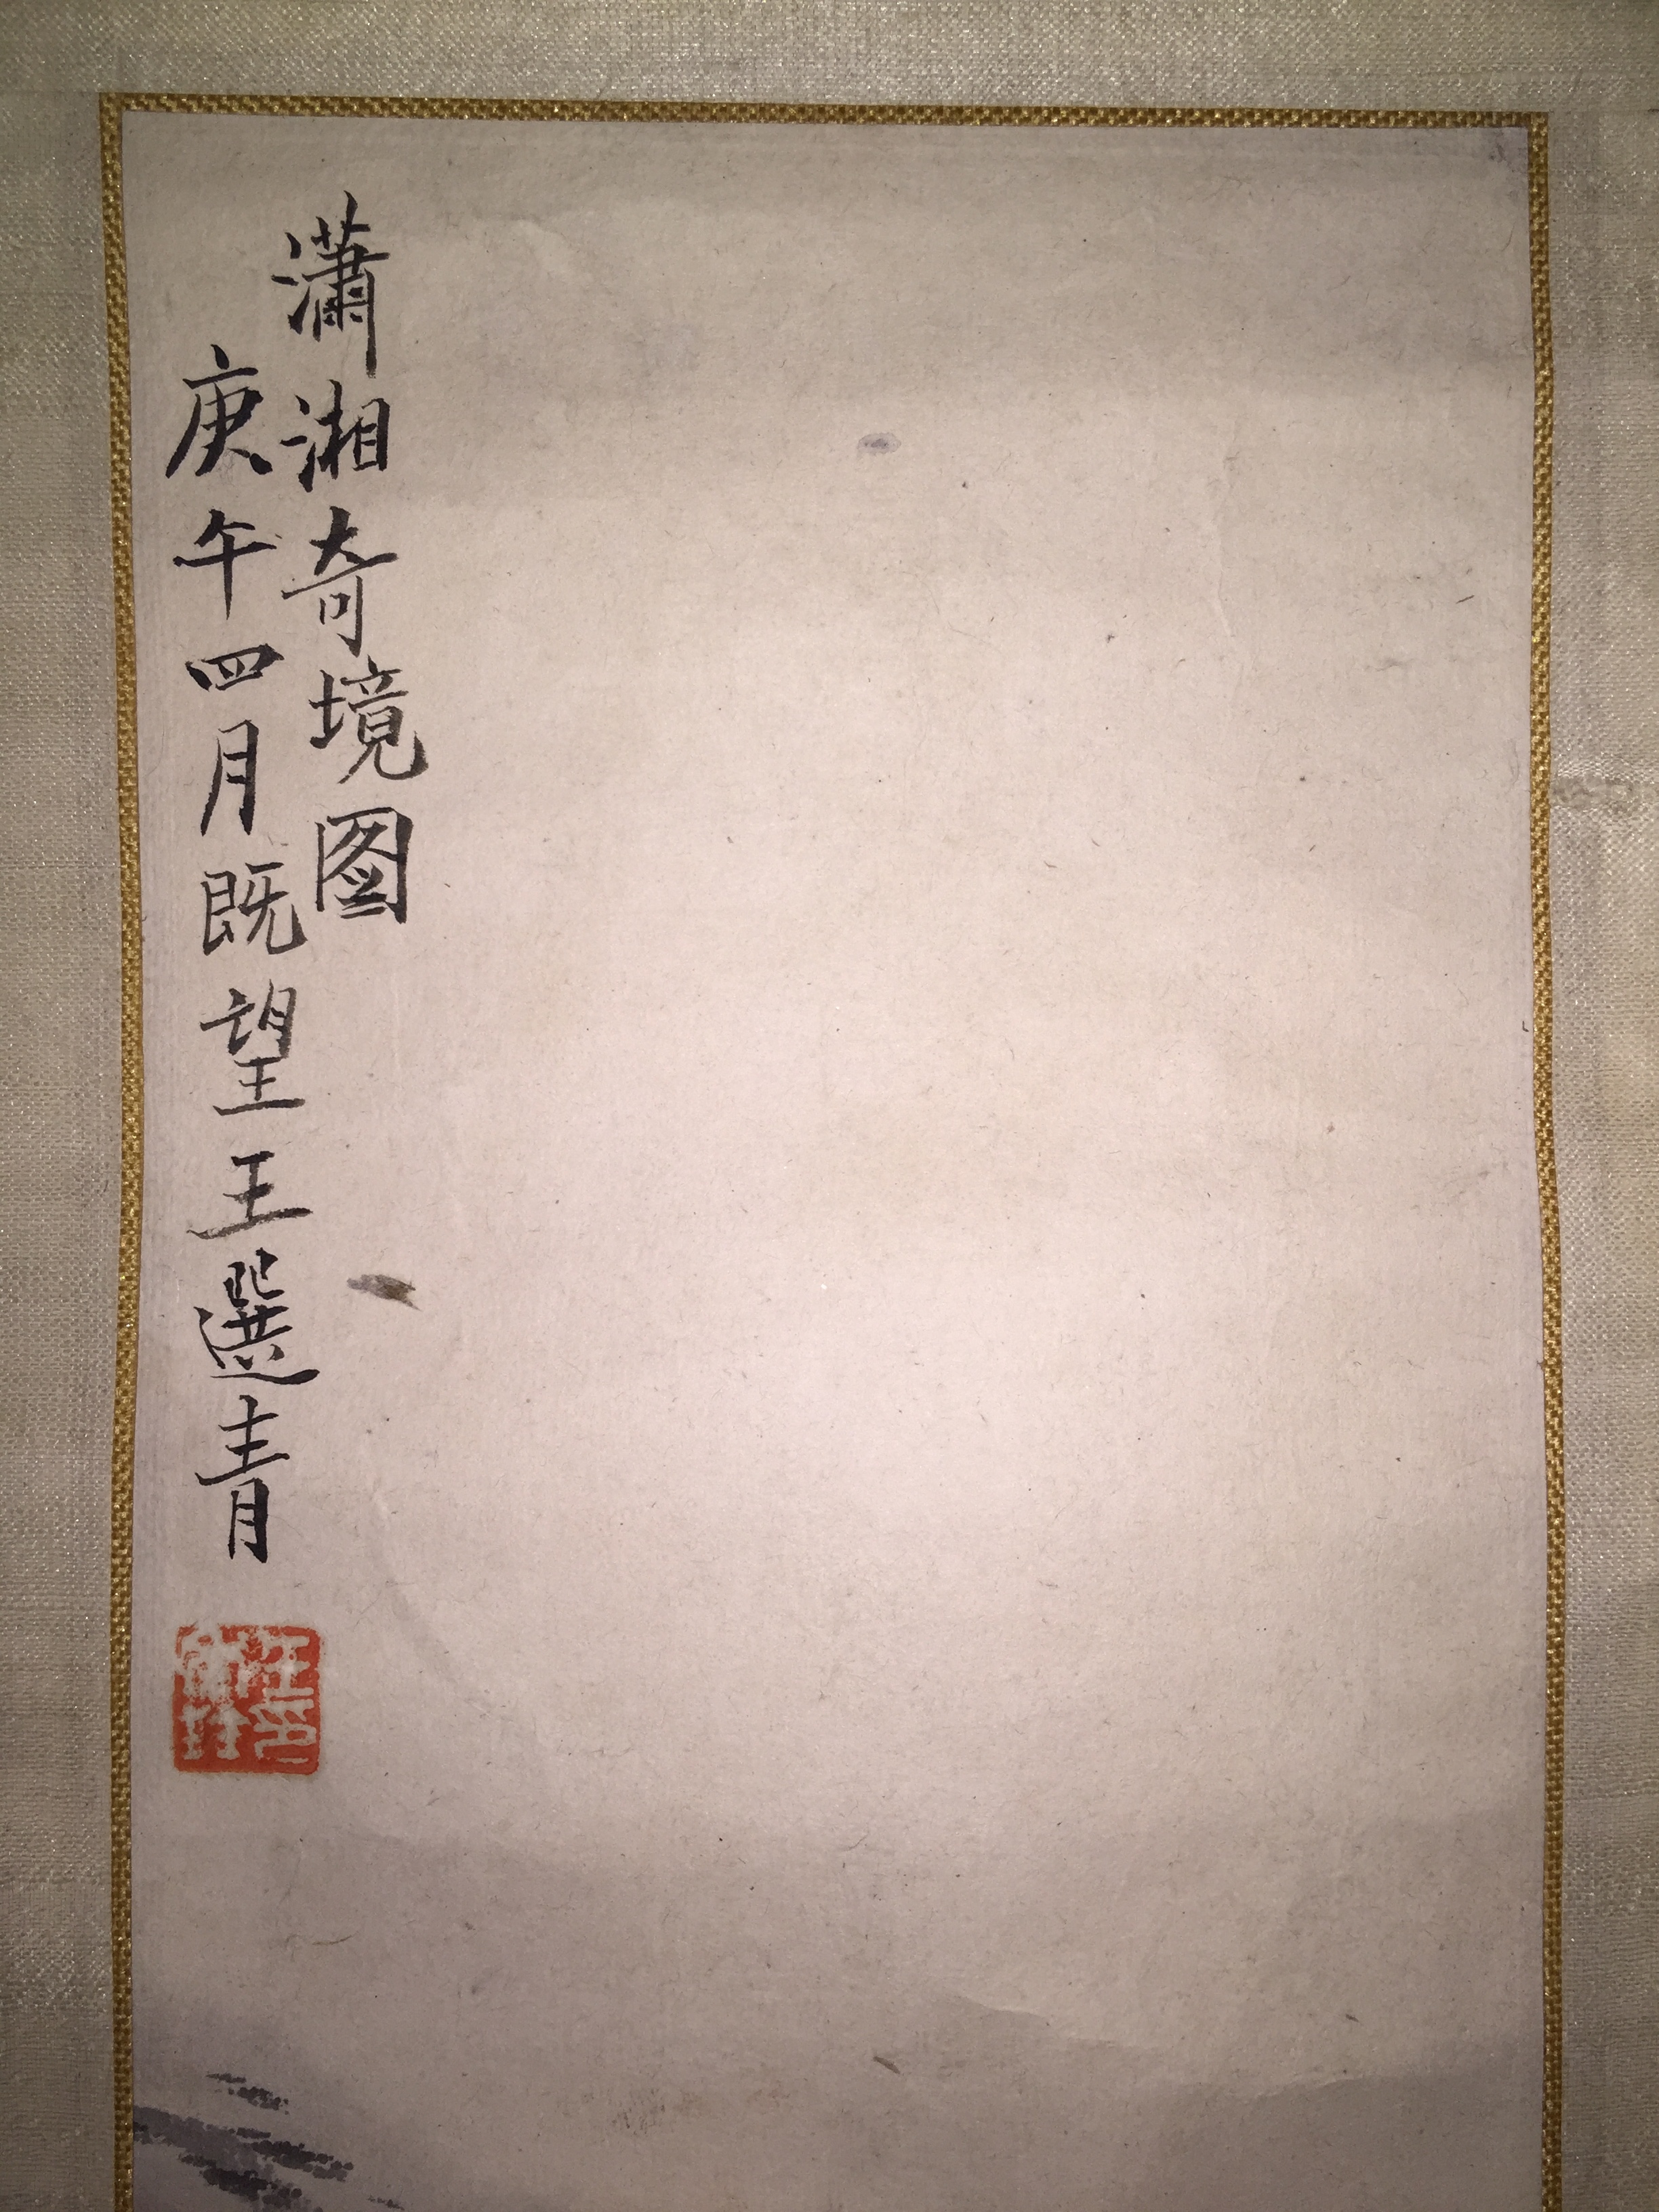 瀟湘奇境图
庚午四月既望王選青